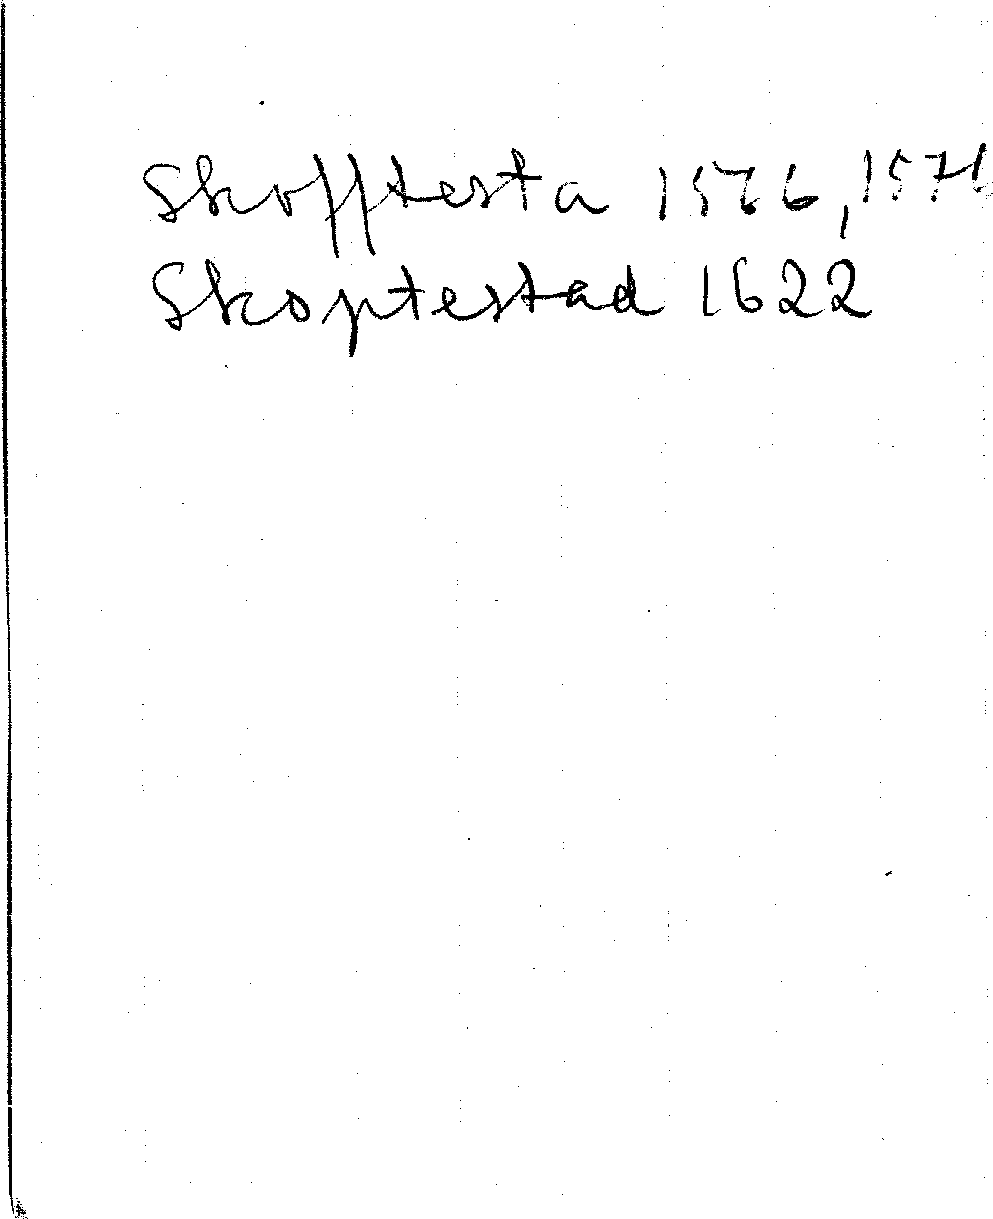 Skofftesta 1576, 157
Skoptestad 1622